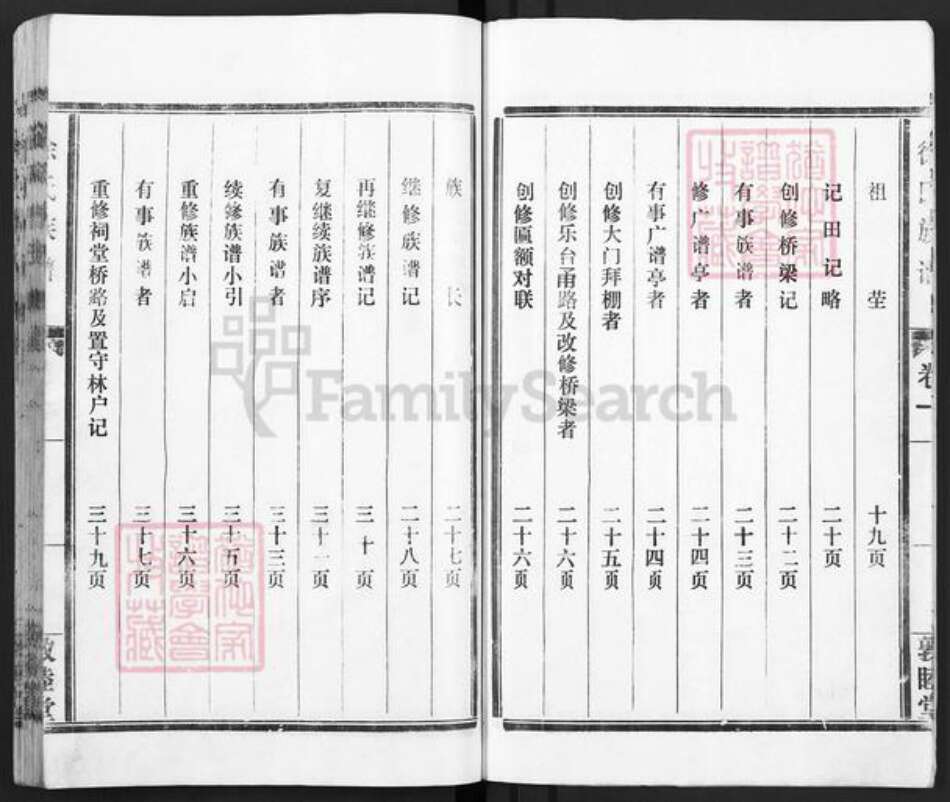 祖茔 十九页
记田记略 二十页
创修桥梁记 二十二页
有事族谱者 二十三页
修广谱亭者 二十四页
有事广谱亭者 二十四页
创修大门拜棚者 二十五页
创修乐台甬路及改修桥梁者 二十六页
创修匾额对联 二十六页
卷一
敦睦堂
族长 二十七页
继修族谱记 二十八页
再继修族谱记 三十页
复继续族谱序 三十一页
有事族谱者 三十三页
续修族谱小引 三十五页
重修族谱小启 三十六页
有事族谱者 三十七页
重修祠堂桥路及置守林户记 三十九页
敦睦堂
FamilySearch